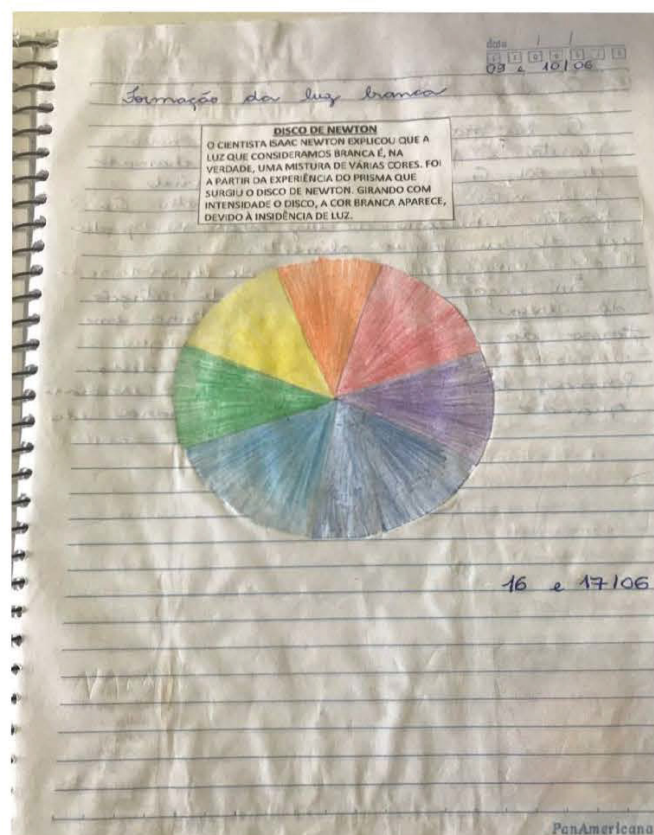 data / /
09 e 10/06
Formação da luz branca
DISCO DE NEWTON
O CIENTISTA ISAAC NEWTON EXPLICOU QUE A
LUZ QUE CONSIDERAMOS BRANCA É, NA
VERDADE, UMA MISTURA DE VÁRIAS CORES. FOI
A PARTIR DA EXPERIÊNCIA DO PRISMA QUE
SURGIU O DISCO DE NEWTON. GIRANDO COM
INTENSIDADE O DISCO, A COR BRANCA APARECE,
DEVIDO À INSIDÊNCIA DE LUZ.
16 e 17/06
PanAmericana